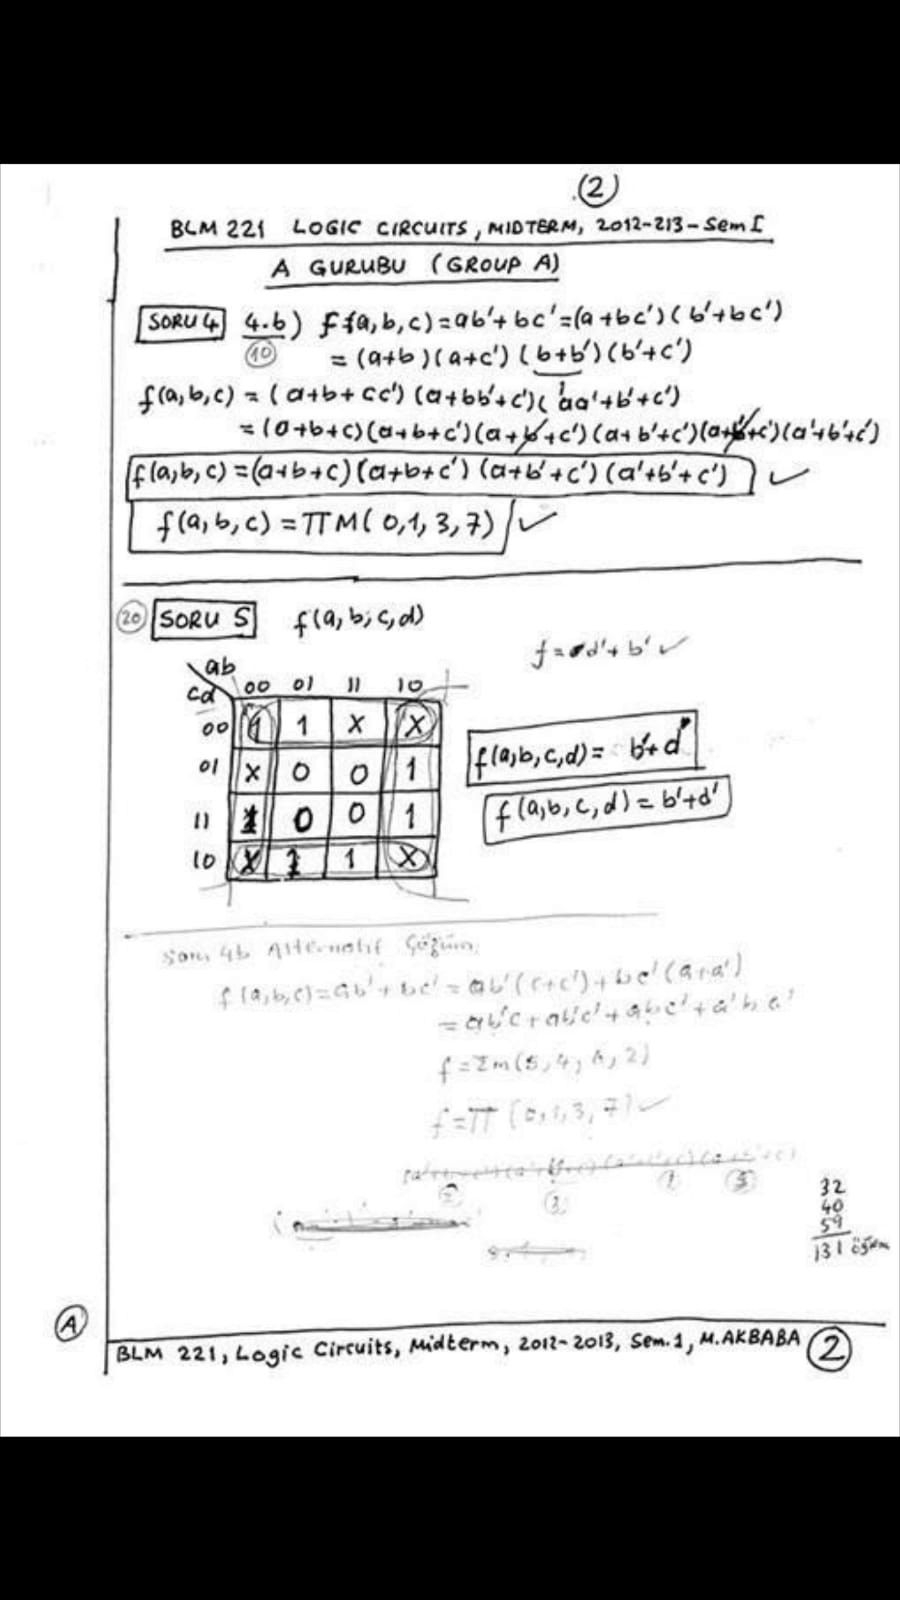 (2)
BLM 221 LOGIC CIRCUITS, MIDTERM, 2012-213-Sem I
A GURUBU (GROUP A)
SORU 4 4.b) f(a,b,c)=ab'+bc'=(a+bc')(b'+bc')
10 =(a+b)(a+c')(b+b')(b'+c')
1
f(a,b,c) = (a+b+cc')(a+bb'+c')(aa'+b'+c')
=(a+b+c)(a+b+c')(a+b+c')(a+b'+c')(a+b'+c')(a'+b'+c')
f(a,b,c)=(a+b+c)(a+b+c')(a+b'+c')(a'+b'+c') ✓
f(a,b,c) = ΠM(0,1,3,7) ✓
20 SORU 5 f(a,b,c,d)
f = d'+b' ✓
ab
cd 00 01 11 10
00 1 1 x x
01 x 0 0 1
11 1 0 0 1
10 x 1 1 x
f(a,b,c,d) = b'+d'
f(a,b,c,d) = b'+d'
Soru 4b Alternatif Çözüm
f(a,b,c)=ab'+bc'=ab'(c+c')+bc'(a+a')
=ab'c+ab'c'+abc'+a'b
f=Σm(5,4,6,2)
f=Π(0,1,3,7) ✓
32
40
59
131
A
BLM 221, Logic Circuits, Midterm, 2012-2013, Sem.1, M.AKBABA 2